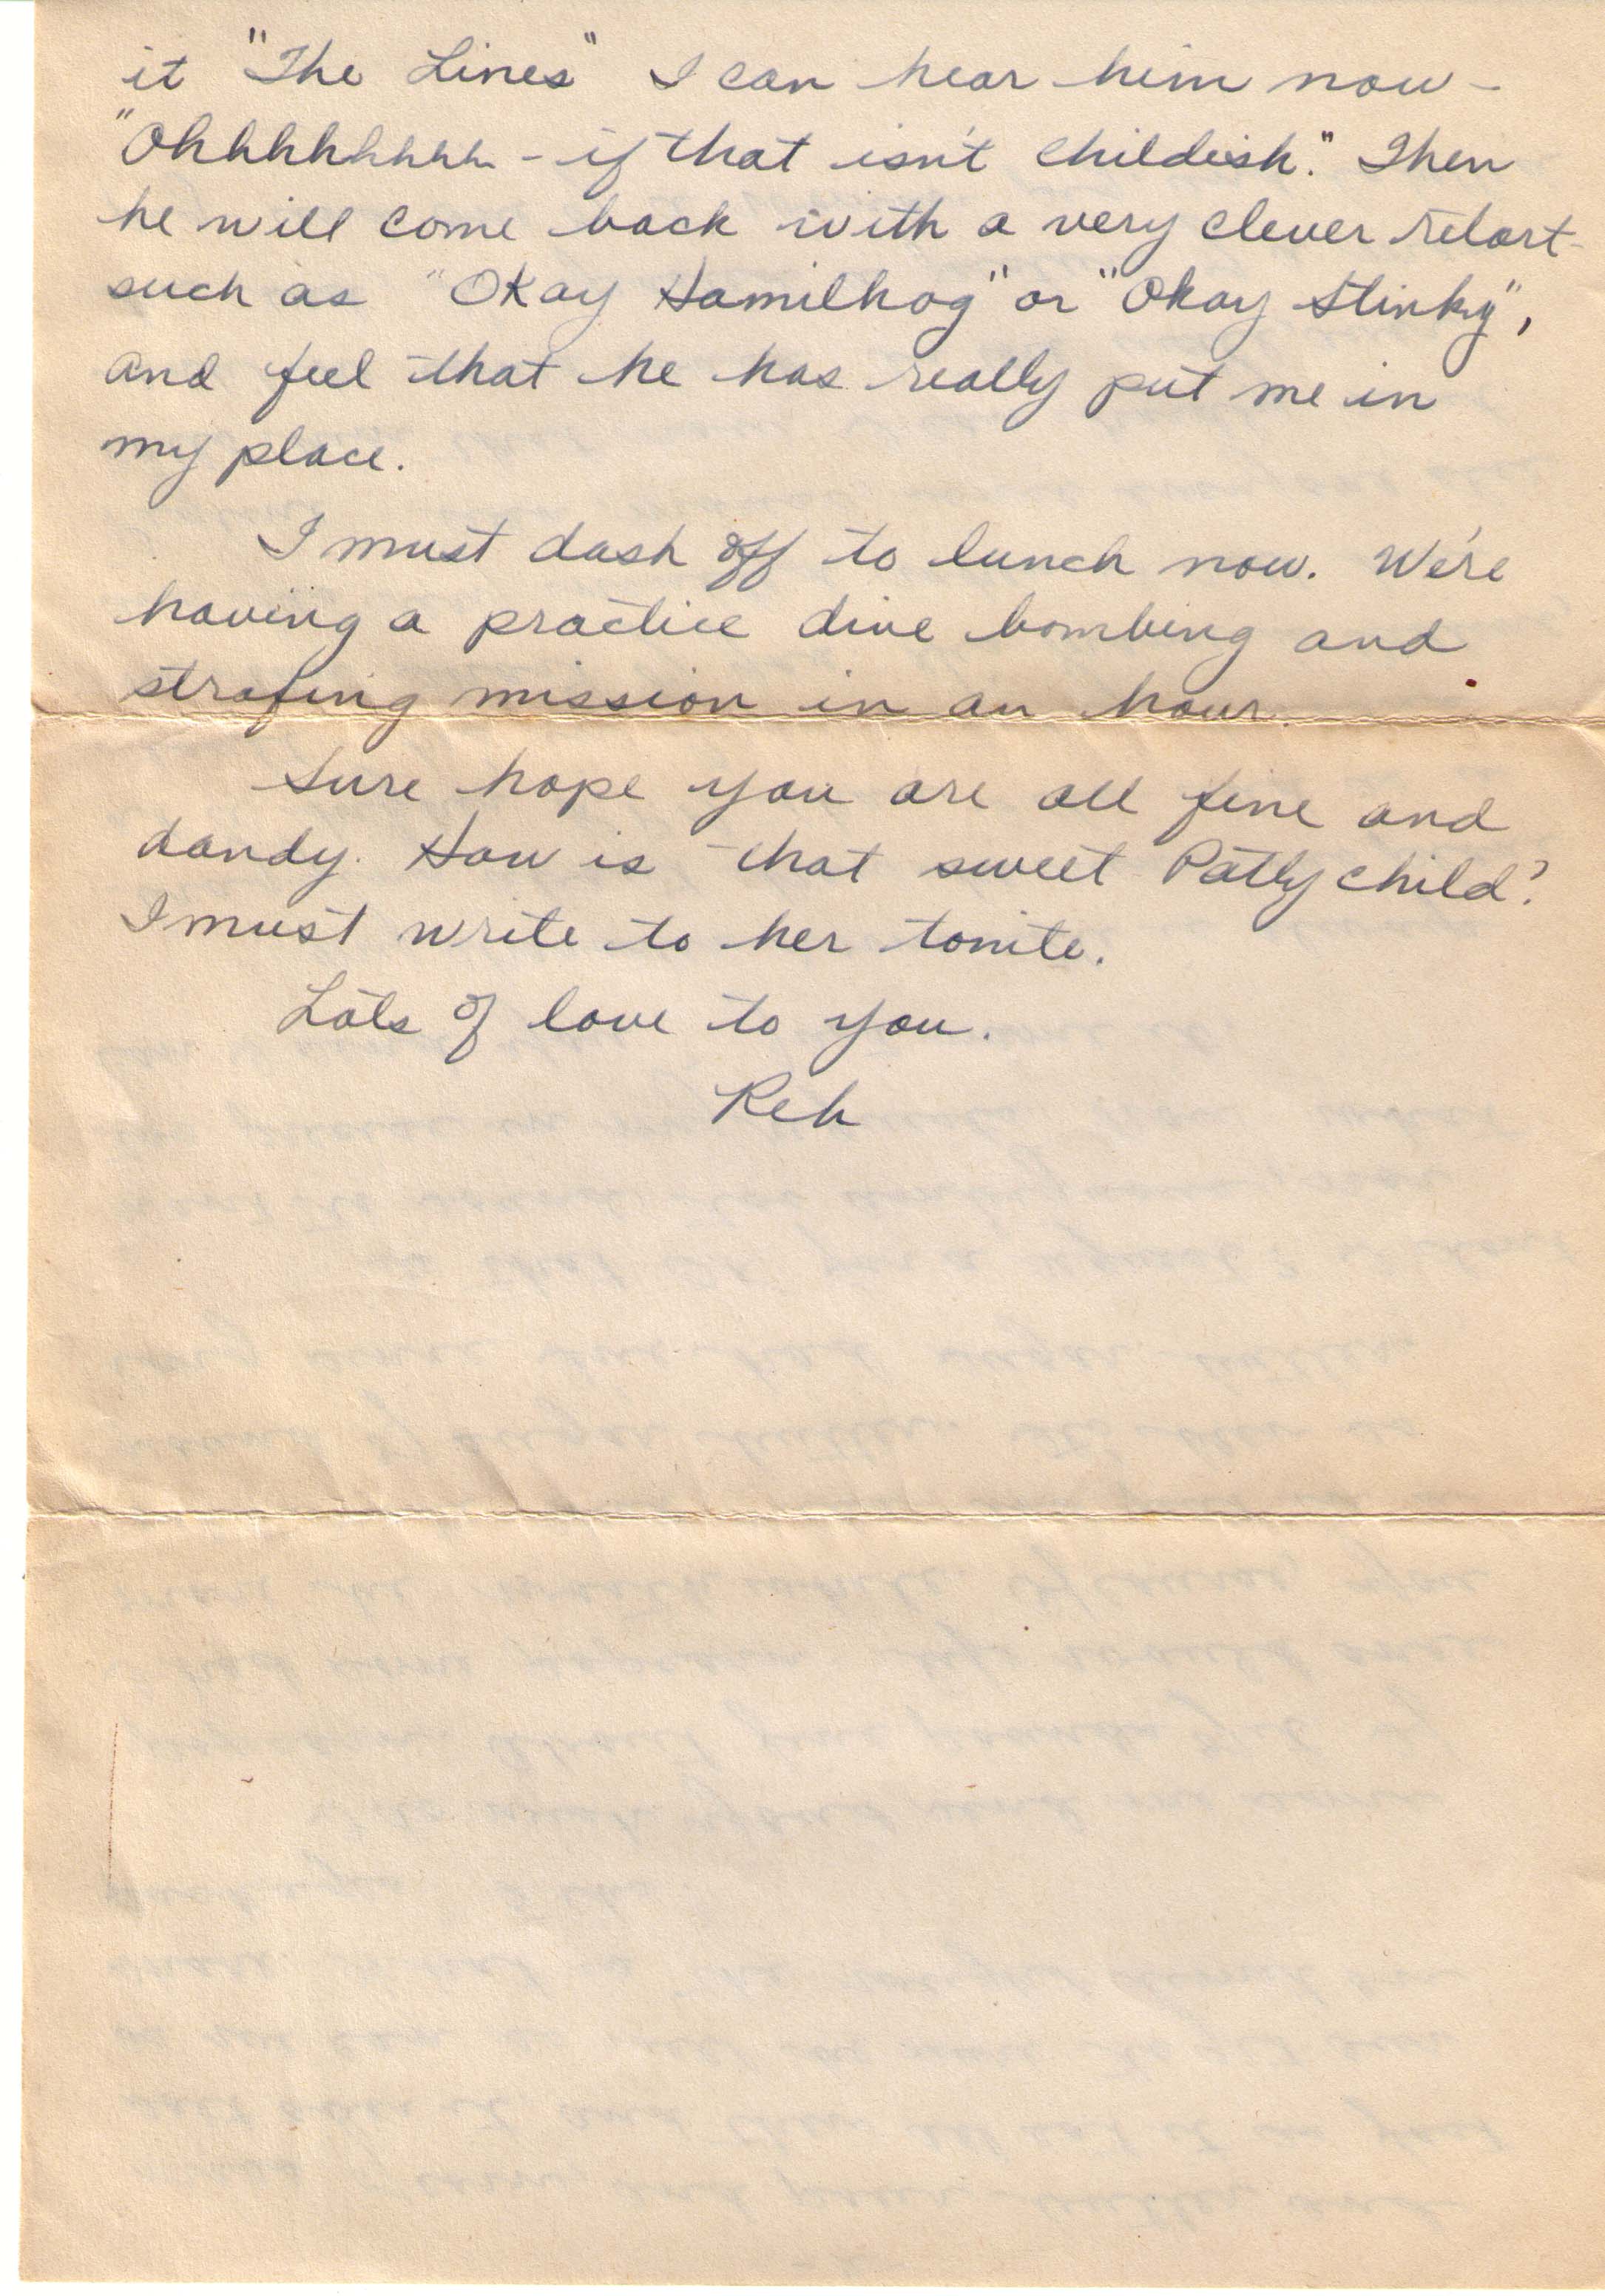 it "The Lines" I can hear him now -
"Ohhhhhhhhh - if that isn't childish." Then
he will come back with a very clever retort
such as "Okay Hamilhog" or "Okay Stinky",
and feel that he has really put me in
my place.
I must dash off to lunch now. We're
having a practice dive bombing and
strafing mission in an hour.
Sure hope you are all fine and
dandy. How is that sweet Patty child?
I must write to her tonite.
Lots of love to you.
Reh